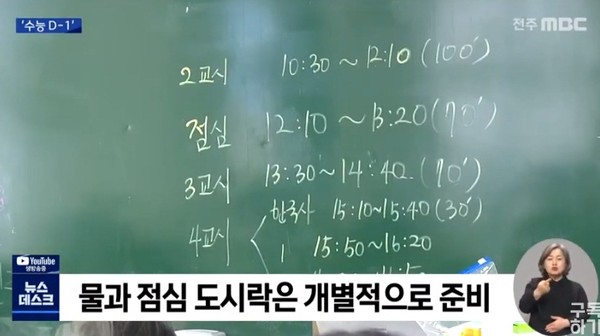 '수능 D-1'
전주 MBC
2교시 10:30 ~ 12:10 (100')
점심 12:10 ~ 13:20 (70')
3교시 13:30 ~ 14:40 (70')
4교시
한국사 15:10~15:40 (30')
1 15:50~16:20
YouTube
생방송중
뉴스
데스크
물과 점심 도시락은 개별적으로 준비
구독
하기